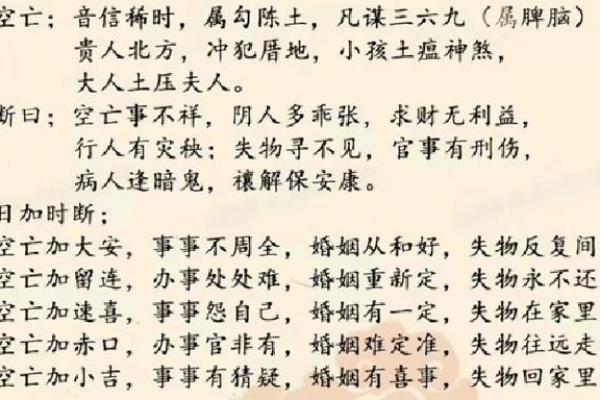 空亡；音信稀时，属勾陈土，凡谋三六九（属脾脑）
贵人北方，冲犯厝地，小孩土瘟神煞，
大人土压夫人。
断曰；空亡事不祥，阴人多乖张，求财无利益，
行人有灾秧；失物寻不见，官事有刑伤，
病人逢暗鬼，禳解保安康。
日加时断；
空亡加大安，事事不周全，婚姻从和好，失物反复间
空亡加留连，办事处处难，婚姻重新定，失物永不还
空亡加速喜，事事怨自己，婚姻有一定，失物在家里
空亡加赤口，办事官非有，婚姻难定准，失物往远走
空亡加小吉，事事有猜疑，婚姻有喜事，失物回家里